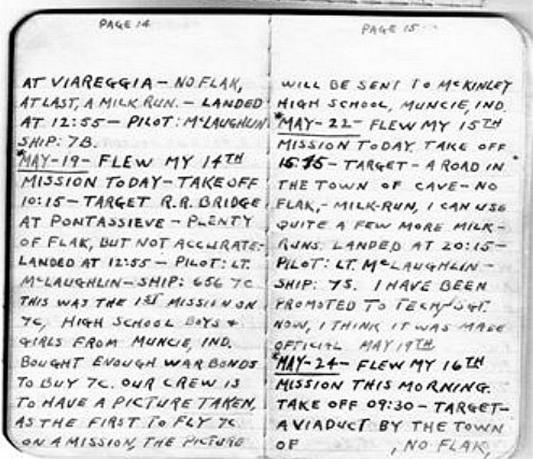 PAGE 14
AT VIAREGGIA - NO FLAK,
AT LAST, A MILK RUN. - LANDED
AT 12:55 - PILOT: McLAUGHLIN
SHIP: 7B.
*MAY-19- FLEW MY 14TH
MISSION TODAY - TAKE OFF
10:15 - TARGET R.R. BRIDGE
AT PONTASSIEVE - PLENTY
OF FLAK, BUT NOT ACCURATE.-
LANDED AT 12:55 - PILOT: LT.
McLAUGHLIN - SHIP: 656 7C
THIS WAS THE 1ST MISSION ON
7C, HIGH SCHOOL BOYS &
GIRLS FROM MUNCIE, IND.
BOUGHT ENOUGH WAR BONDS
TO BUY 7C. OUR CREW IS
TO HAVE A PICTURE TAKEN,
AS THE FIRST TO FLY 7C
ON A MISSION, THE PICTURE
PAGE 15
WILL BE SENT TO McKINLEY
HIGH SCHOOL, MUNCIE, IND.
*MAY-22- FLEW MY 15TH
MISSION TODAY. TAKE OFF
- TARGET - A ROAD IN
THE TOWN OF CAVE - NO
FLAK, - MILK-RUN, I CAN USE
QUITE A FEW MORE MILK-
RUNS. LANDED AT 20:15 -
PILOT: LT. McLAUGHLIN -
SHIP: 75. I HAVE BEEN
PROMOTED TO TECH/SGT.
NOW, I THINK IT WAS MADE
OFFICIAL MAY 19TH
*MAY-24- FLEW MY 16TH
MISSION THIS MORNING.
TAKE OFF 09:30 - TARGET-
A VIADUCT BY THE TOWN
OF , NO FLAK,